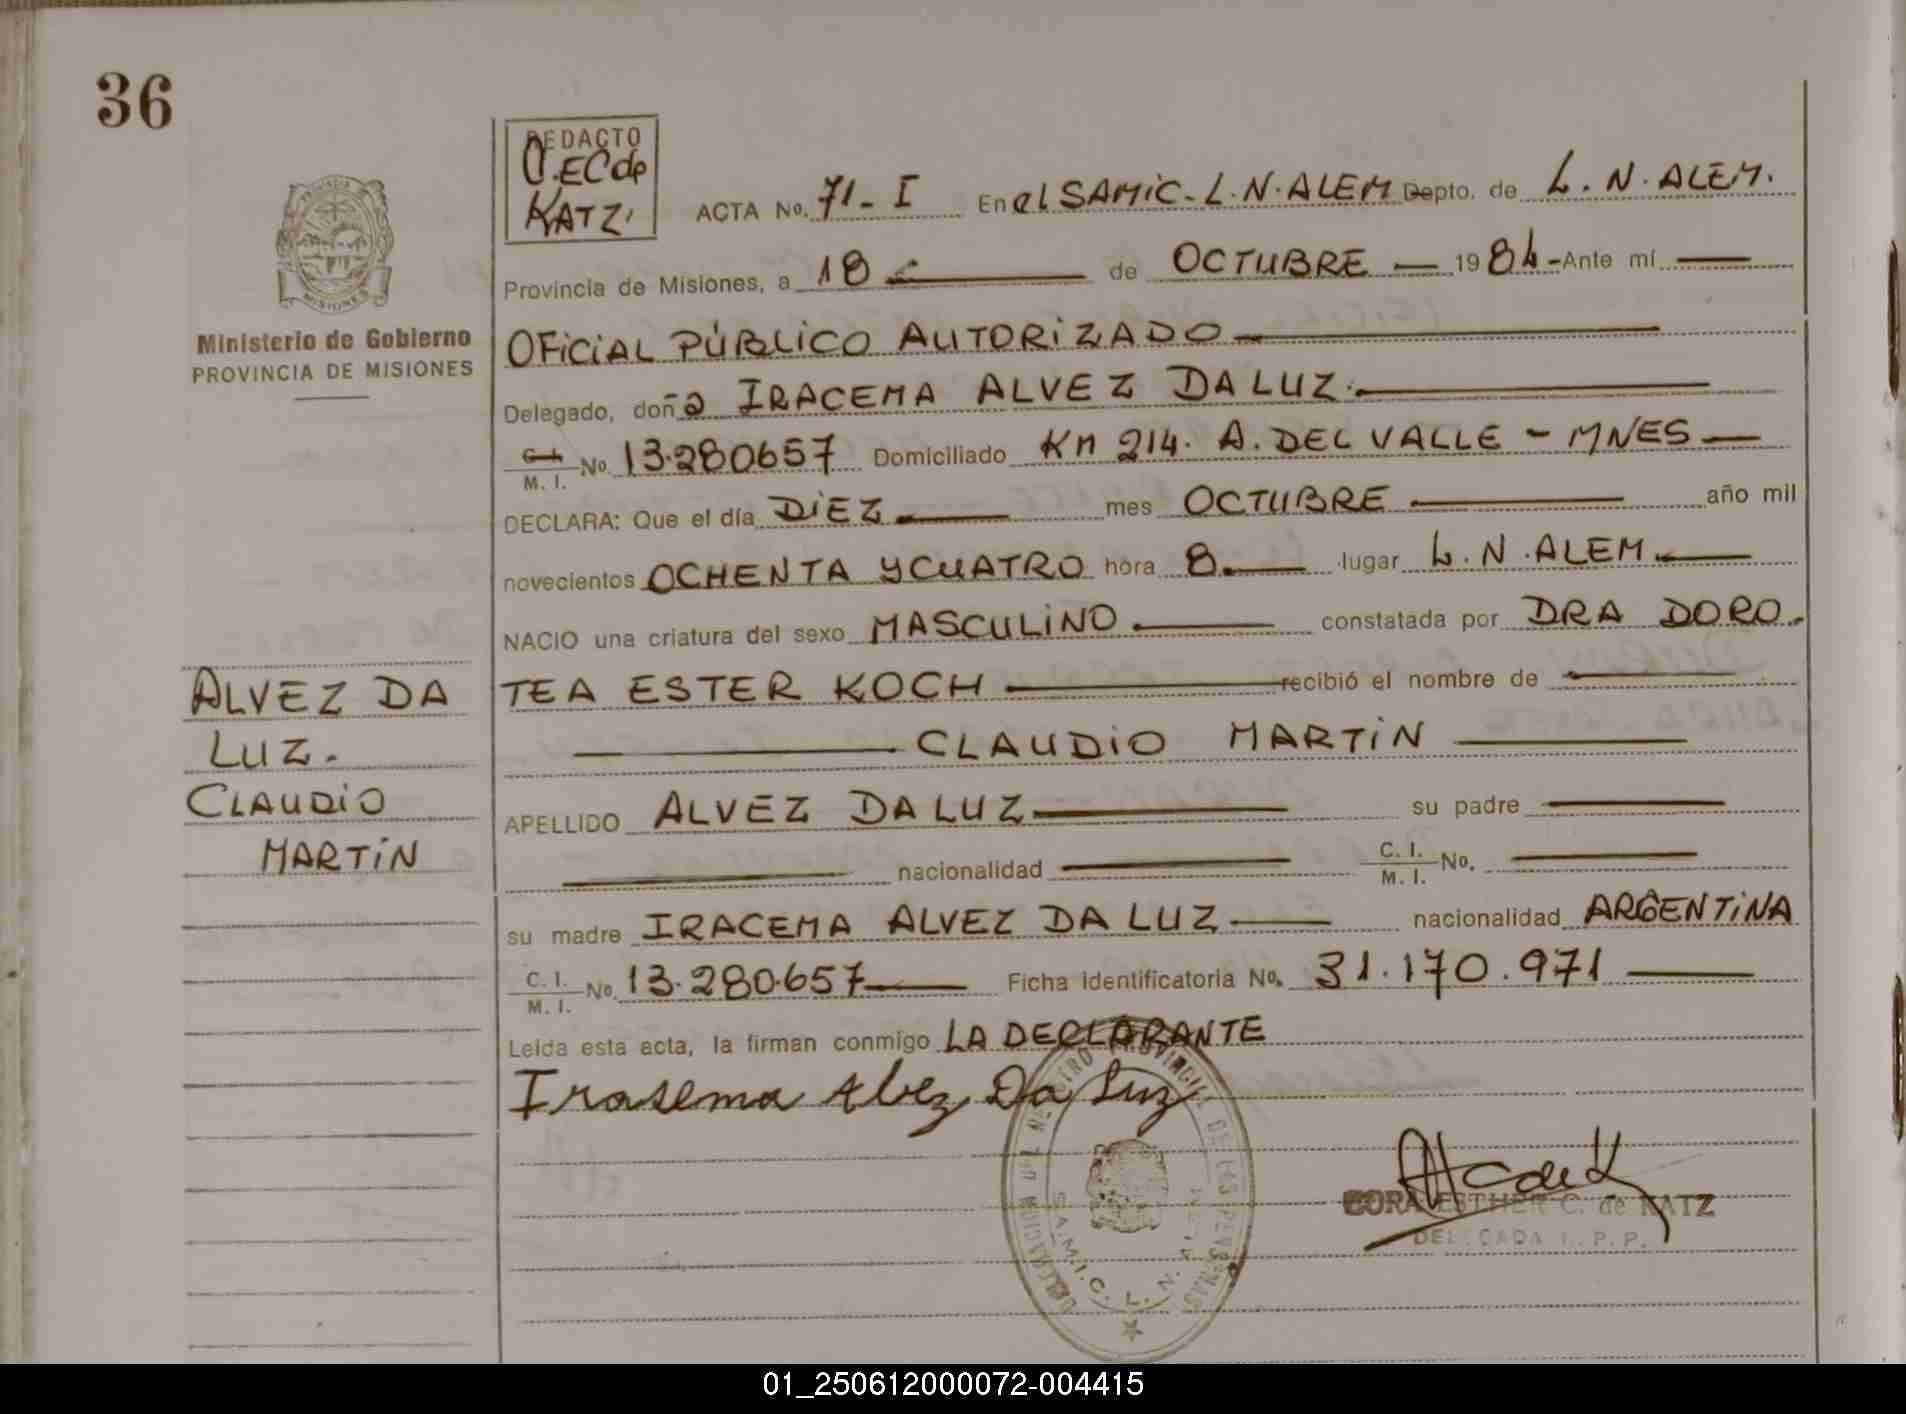 36
REDACTO
O.EC de
KATZ
ACTA No. 71-I En el SAMIC-L.N.ALEM Depto. de L.N.ALEM.
Provincia de Misiones, a 18 de OCTUBRE 1984-Ante mí
OFICIAL PÚBLICO AUTORIZADO
Delegado, doña IRACEMA ALVEZ DA LUZ.
C. I.
M. I. No 13.280657 Domiciliado KM 214. A. DEL VALLE - MNES
DECLARA: Que el día DIEZ mes OCTUBRE año mil
novecientos OCHENTA Y CUATRO hora 8. lugar L.N.ALEM.
NACIO una criatura del sexo MASCULINO constatada por DRA DORO-
TEA ESTER KOCH recibió el nombre de
CLAUDIO MARTIN
APELLIDO ALVEZ DA LUZ su padre
nacionalidad C. I.
M. I. No.
su madre IRACEMA ALVEZ DA LUZ nacionalidad ARGENTINA
C. I.
M. I. No. 13.280.657 Ficha identificatoria No. 31.170.971
Leída esta acta, la firman conmigo LA DECLARANTE
Irasema Alvez Da Luz
PROVINCIA DE MISIONES
Ministerio de Gobierno
PROVINCIA DE MISIONES
ALVEZ DA
LUZ.
CLAUDIO
MARTIN
REGISTRO PROVINCIAL DE LAS PERSONAS
S.A.M.I.C. L. N. ALEM
ESTHER C. de KATZ
DELEGADA R. P. P.
01_250612000072-004415